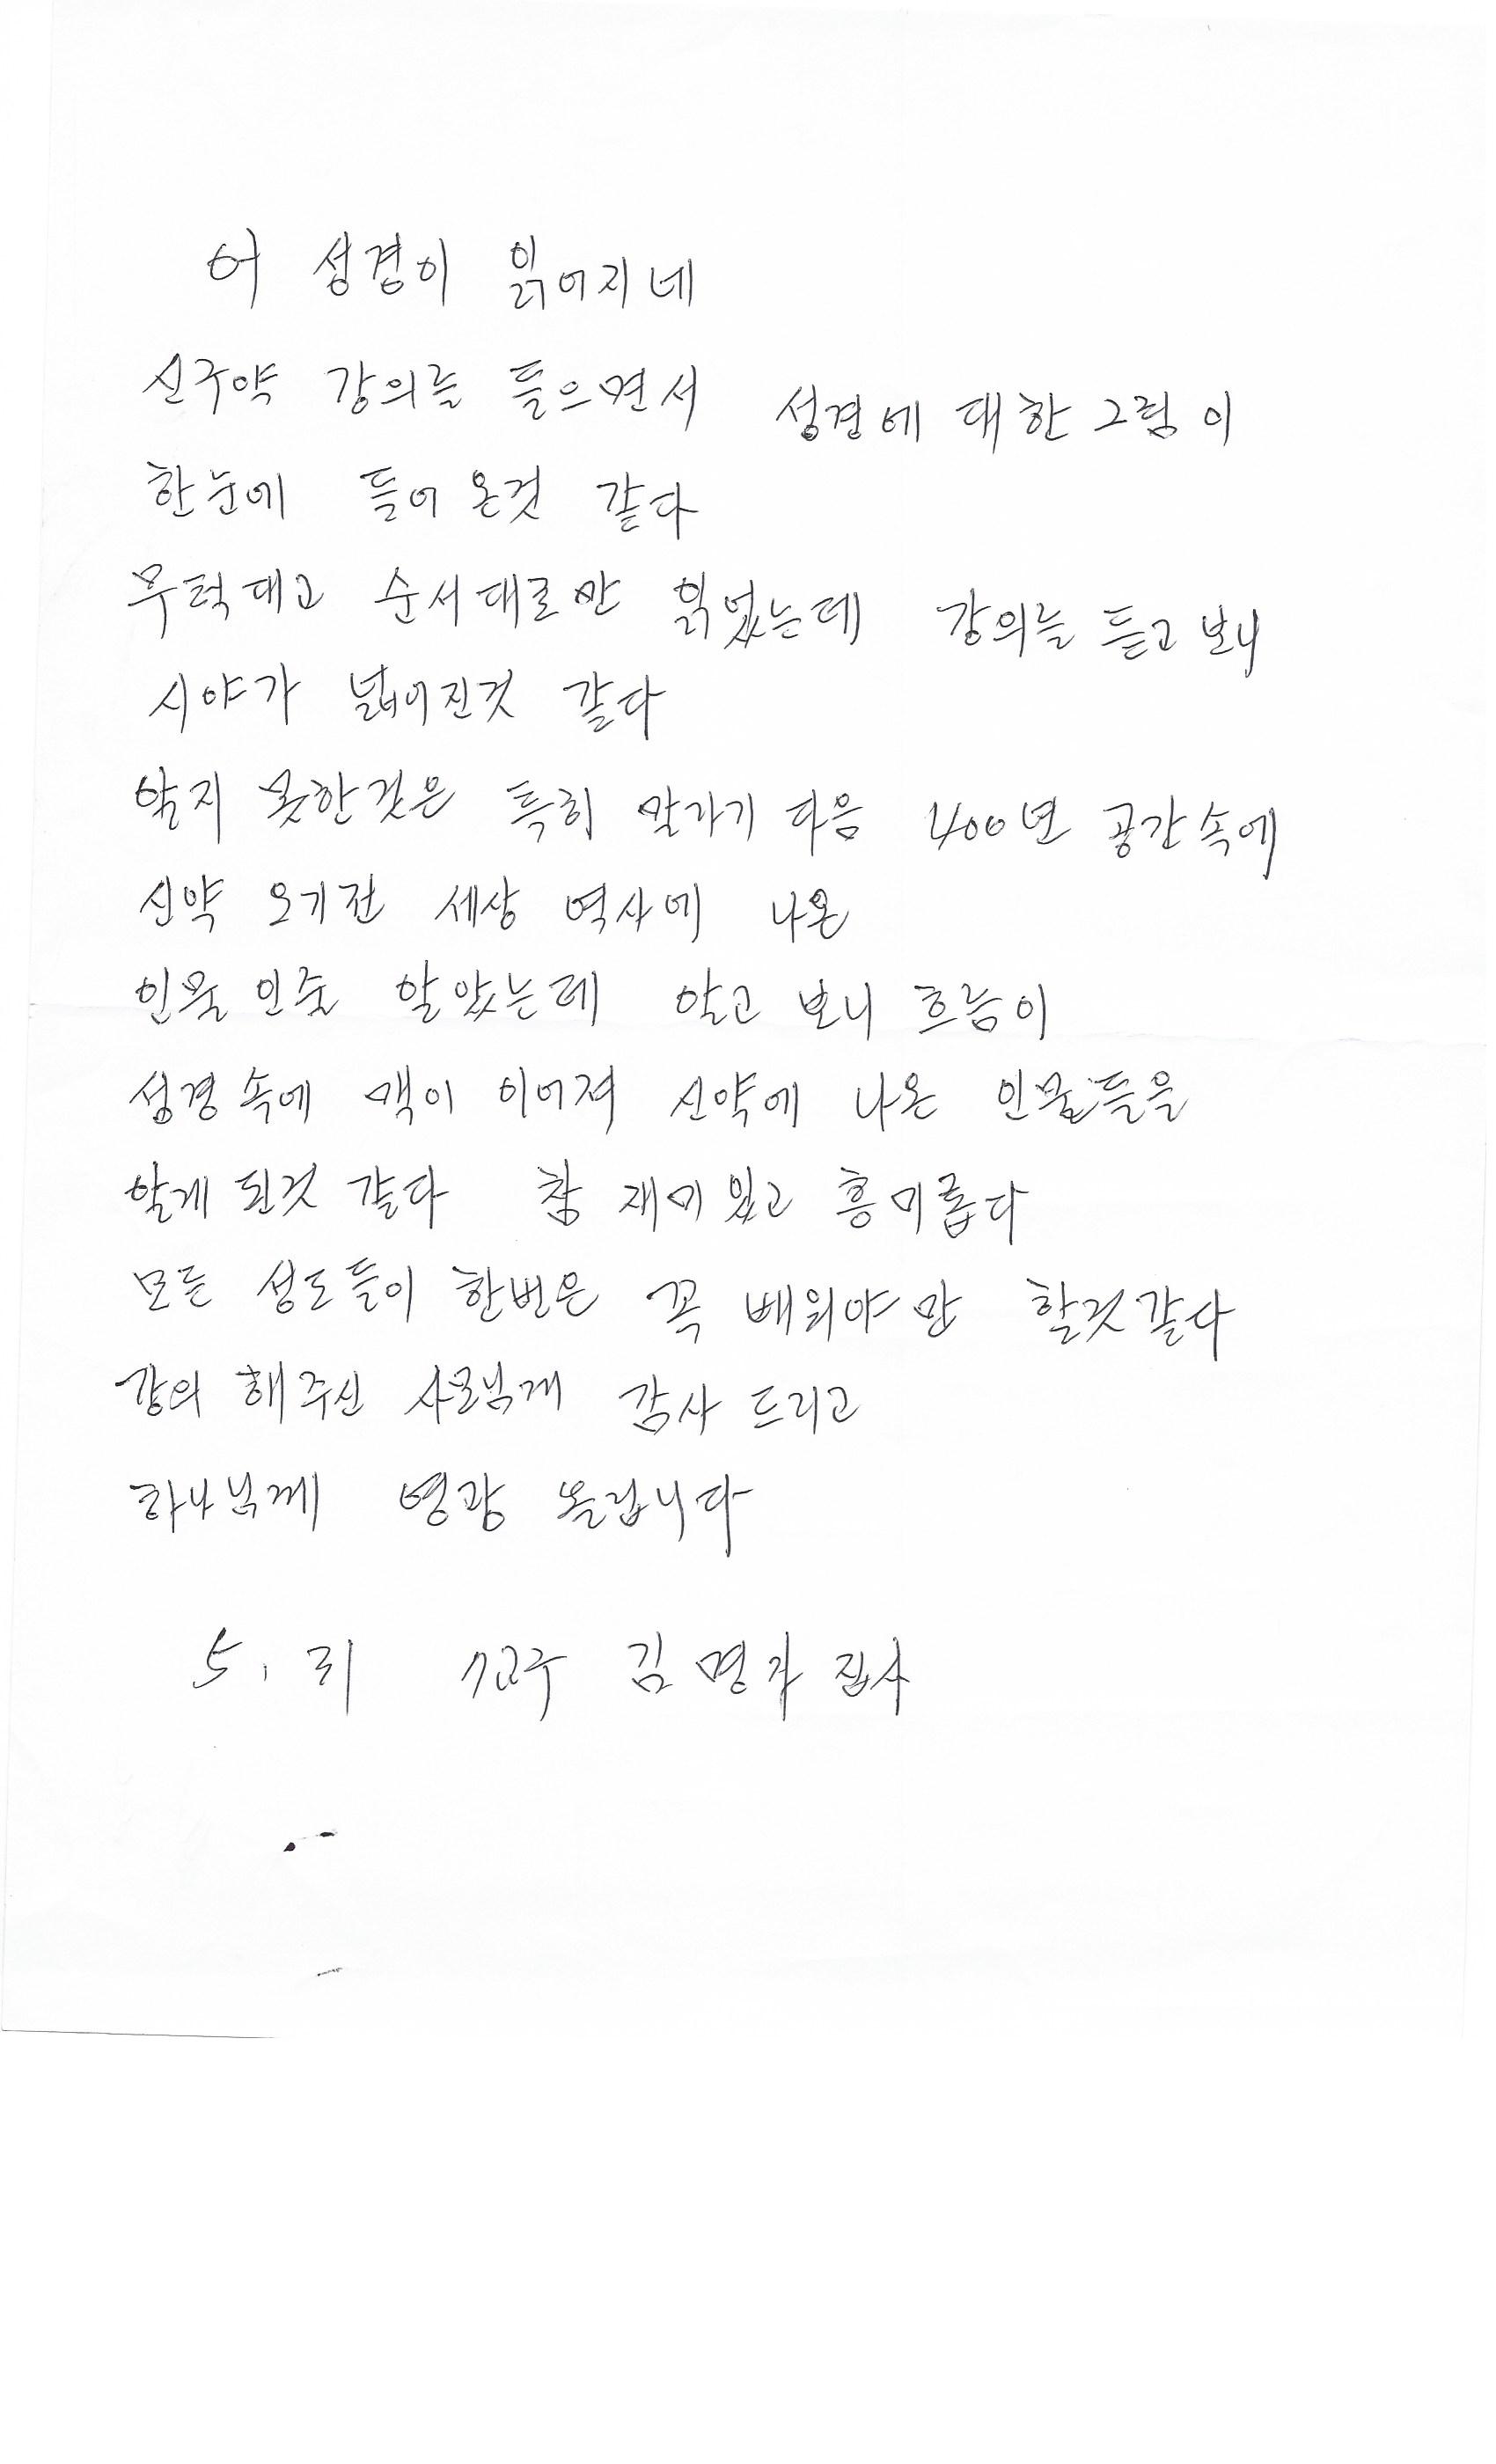 어 성경이 읽어지네
신구약 강의를 들으면서 성경에 대한 그림이
한눈에 들어 온것 같다
무턱대고 순서대로만 읽었는데 강의를 듣고 보니
시야가 넓어진것 같다
알지 못한것은 특히 말라기 다음 400년 공간속에
신약 오기전 세상 역사에 나온
인물 인줄 알았는데 알고 보니 흐름이
성경속에 맥이 이어져 신약에 나온 인물들을
알게 된것 같다 참 재미있고 흥미롭다
모든 성도들이 한번은 꼭 배워야만 할것같다
강의 해주신 사모님게 감사 드리고
하나님께 영광 올립니다
5. 김명자 집사